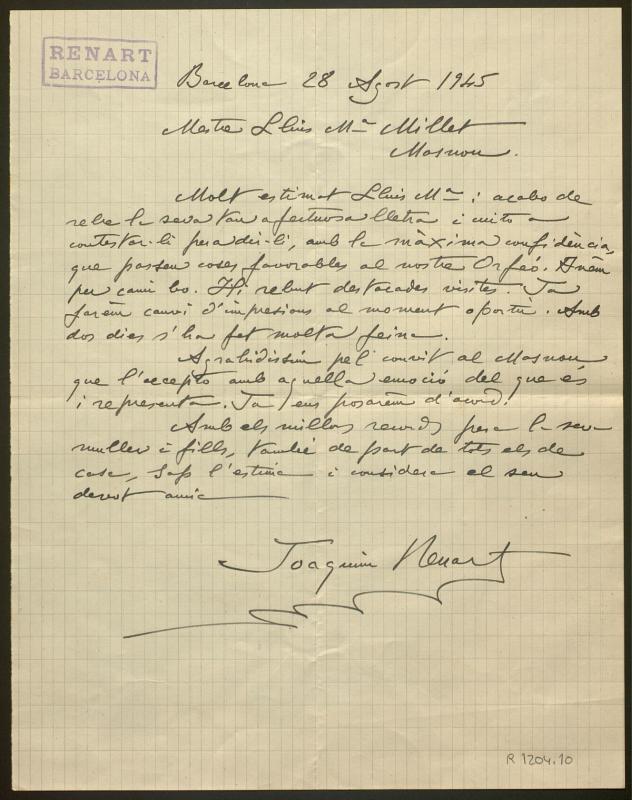 RENART
BARCELONA
Barcelona 28 Agost 1945
Mestre Lluis Mª Millet
Masnou.
Molt estimat Lluis Mª: acabo de
rebre la seva tan afectuosa lletra i cuito a
contestar-li per a dir-li, amb la màxima confidència,
que passen coses favorables al nostre Orfeó. Anèm
per camí bo. Hi rebut destacades visites. Ja
farèm canvi d'impresions al moment oportú. Amb
dos dies s'ha fet molta feina.
Agraïdissim pel convit al Masnou
que l'accepto amb aquella emoció del que és
i representa. Ja ens posarèm d'acord.
Amb els millors records pera la seva
muller i fills, també de part de tots els de
casa, sap l'estima i considera el seu
devot amic
Joaquim Renart
R 1204.10